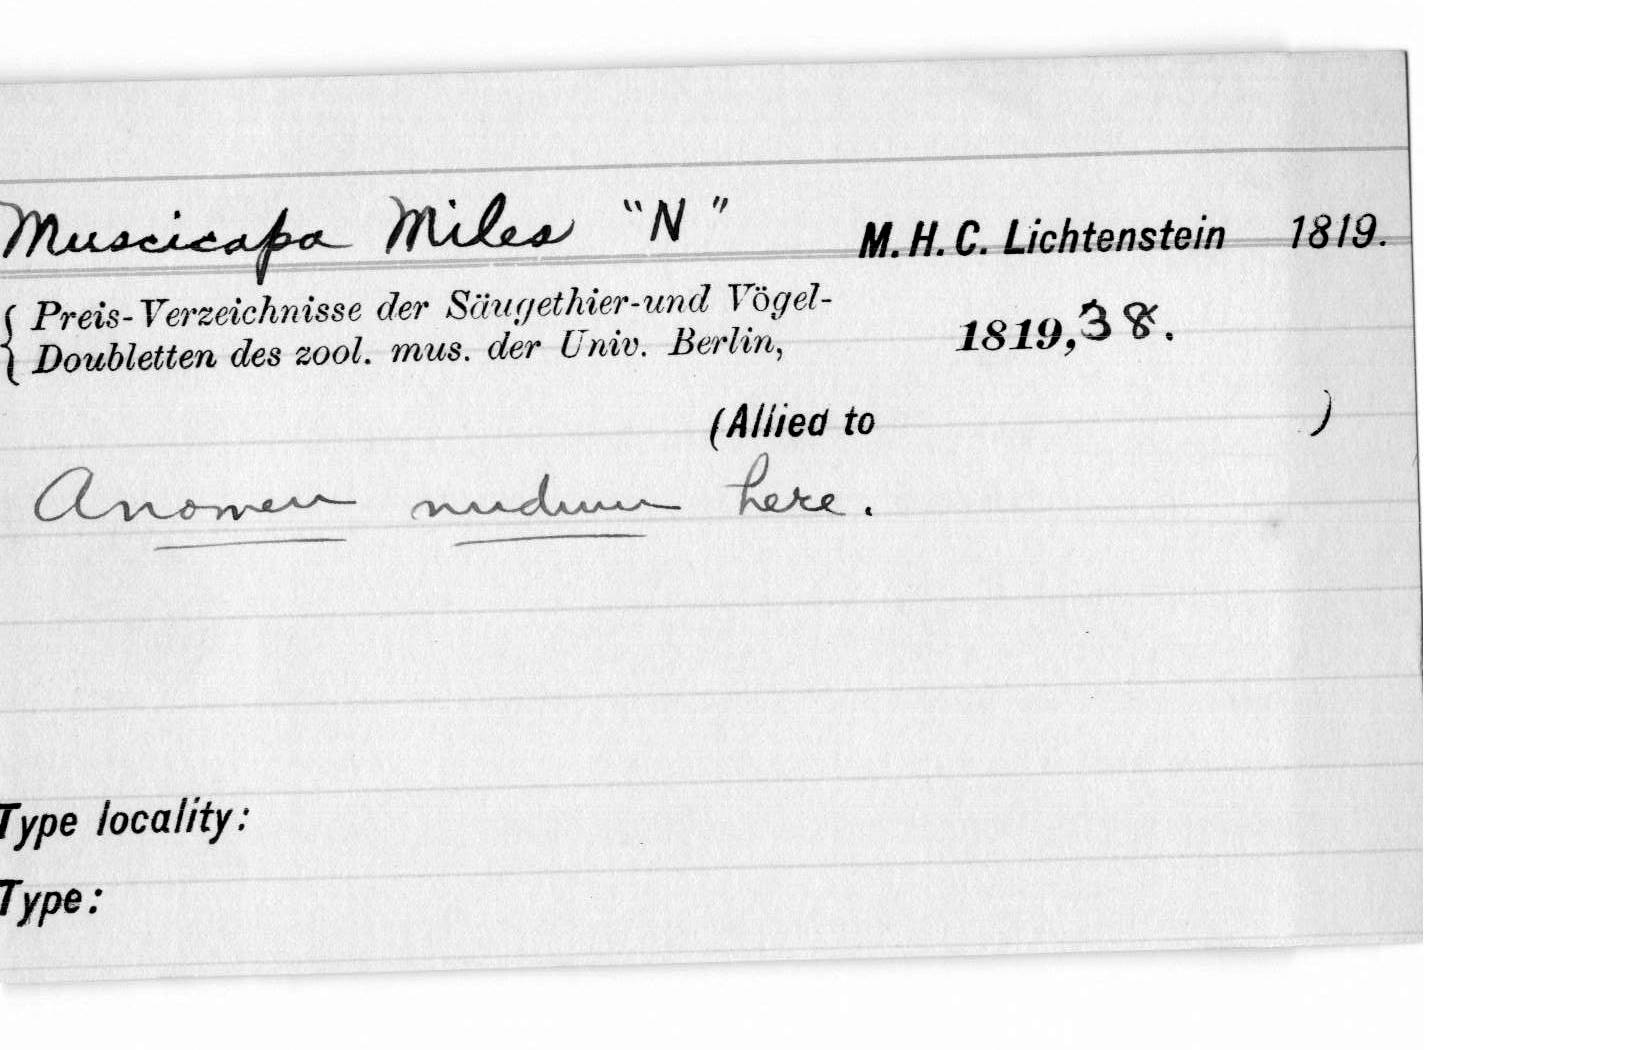 Muscicapa Miles "N" M. H. C. Lichtenstein 1819.
{ Preis-Verzeichnisse der Säugethier-und Vögel-
Doubletten des zool. mus. der Univ. Berlin, 1819, 38.
(Allied to )
A nomen nudum here.
Type locality:
Type: